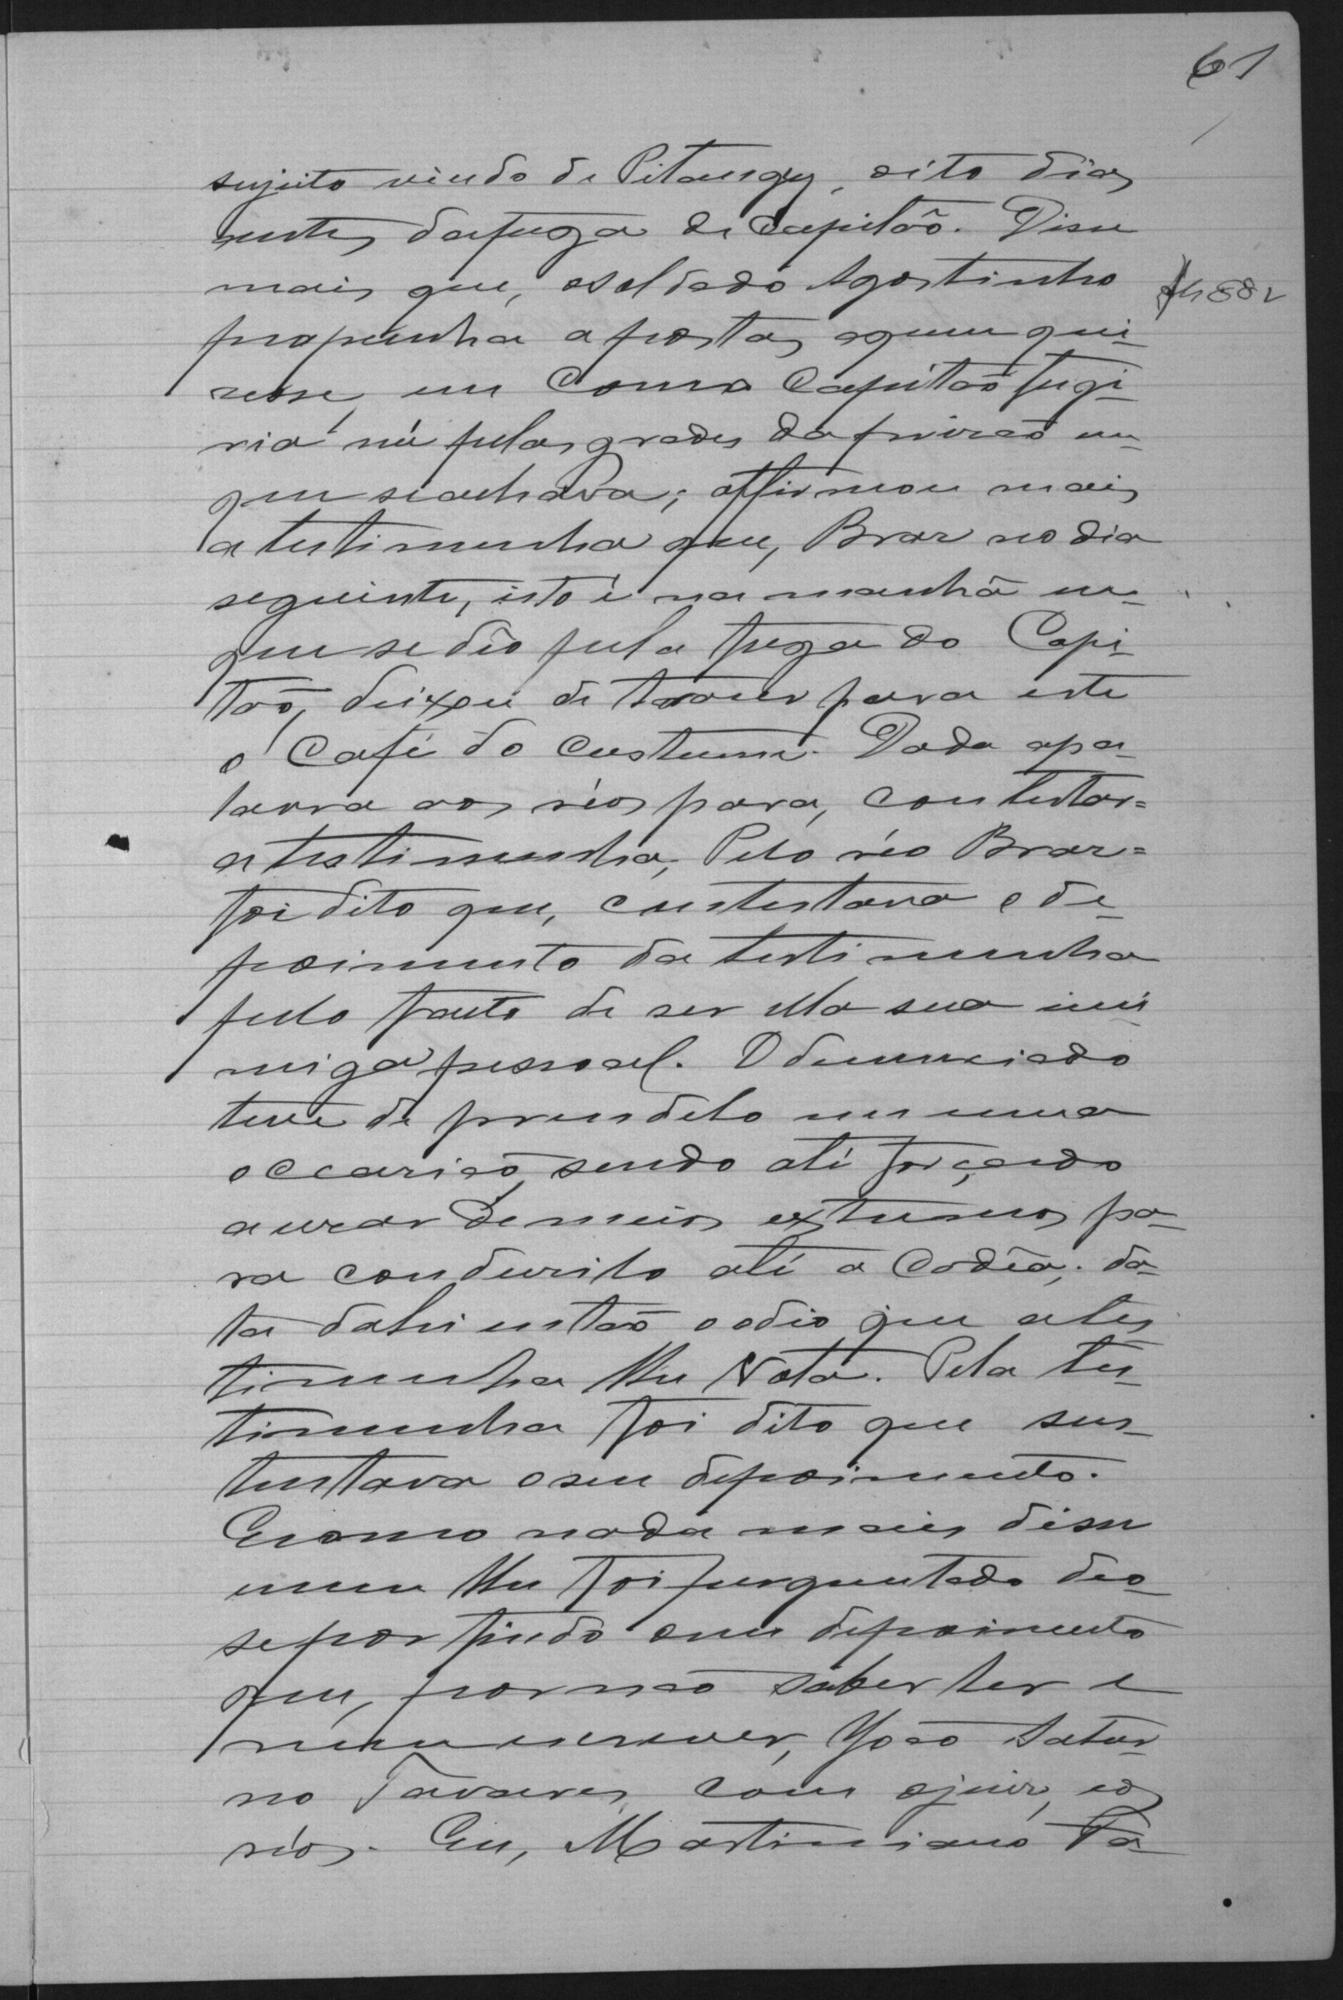 61
sujeito viudo de Pitanguy, oito dias
antes da fuga do Capitão. Disse
mais que, o soldado Agostinho
fls 88 v
propunha apostas a quem qui-
zesse, em como o Capitão fugi-
ria nú pelas grades da prisão em
que se achava; affirmou mais
a testimunha que, Braz no dia
seguinte, isto é na manhã em
que se deo pela fuga do Capi-
tão, deixou de trazer para este
o Café do custume. Dada a pa-
lavra aos réos para, contestar=
a testimunha, Pelo réo Braz=
foi dito que, contestava o de-
poimento da testimunha
pelo facto de ser ella sua ini
miga pessoal. O denunciado
teve de prendelo em uma
occazião, sendo até forçado
a uzar de meios extremos pa-
ra conduzilo até a Cadêa; da-
ta dahi então o odio que a tes
timunha lhe vota. Pela tes-
timunha foi dito que sus-
tentava o seu depoimento.
E como nada mais disse
nem lhe foi perguntado deo-
se por findo o seu depoimento
que, por não saber ler e
nem escrever, João Satur-
no Tavares, com o juiz, e os
réos. Eu, Martiniano Ta-